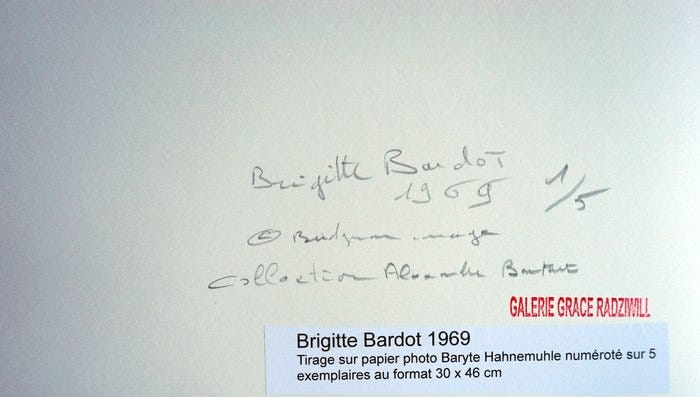 Brigitte Bardot
1969 1/5
© Bridgeman image
Collection Alexandre
GALERIE GRACE RADZIWILL
Brigitte Bardot 1969
Tirage sur papier photo Baryte Hahnemuhle numéroté sur 5
exemplaires au format 30 x 46 cm